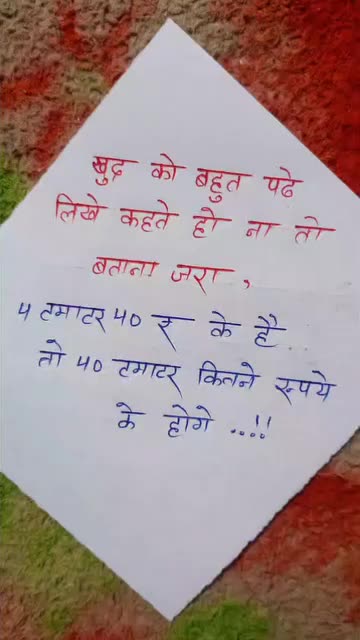 खुद को बहुत पढे
लिखे कहते हो ना तो
बताना जरा ,
4 टमाटर 40 रु के है
तो 40 टमाटर कितने रूपये
के होगे ...!!